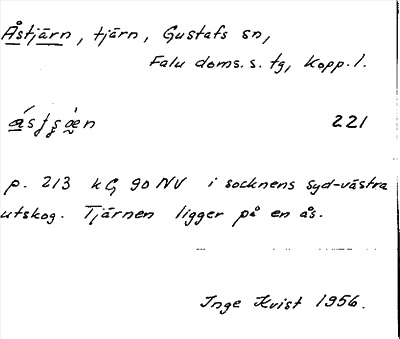 Åstjärn, tjärn, Gustafs sn,
Falu doms.s. tg, Kopp.l.
221
p. 213 kG 90 NV i socknens syd-västra
utskog. Tjärnen ligger på en ås.
Inge Kvist 1956.